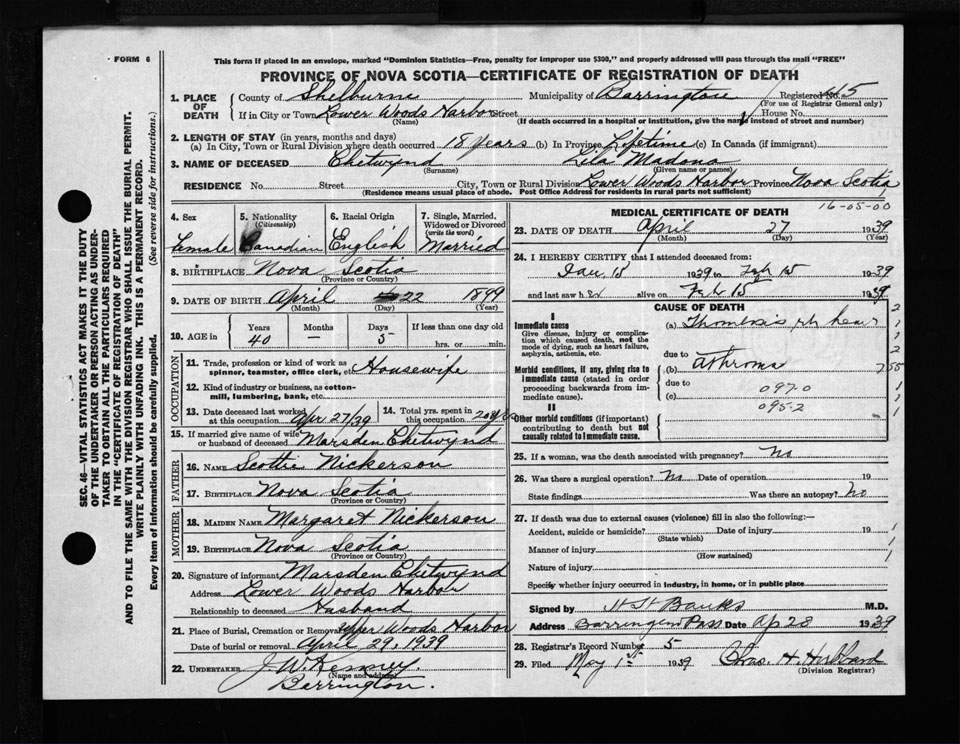 FORM 6
This form if placed in an envelope, marked "Dominion Statistics—Free, penalty for improper use $300," and properly addressed will pass through the mail "FREE"
PROVINCE OF NOVA SCOTIA—CERTIFICATE OF REGISTRATION OF DEATH
SEC. 46—VITAL STATISTICS ACT MAKES IT THE DUTY
OF THE UNDERTAKER OR PERSON ACTING AS UNDER-
TAKER TO OBTAIN ALL THE PARTICULARS REQUIRED
IN THE "CERTIFICATE OF REGISTRATION OF DEATH"
AND TO FILE THE SAME WITH THE DIVISION REGISTRAR WHO SHALL ISSUE THE BURIAL PERMIT.
WRITE PLAINLY WITH UNFADING INK. THIS IS A PERMANENT RECORD.
Every item of information should be carefully supplied. (See reverse side for instructions.)
1. PLACE OF DEATH
County of Shelburne Municipality of Barrington Registered No. 45
(For use of Registrar General only)
If in City or Town Lower Woods Harbor Street House No.
(Name) (If death occurred in a hospital or institution, give the name instead of street and number)
2. LENGTH OF STAY (in years, months and days)
(a) In City, Town or Rural Division where death occurred 18 years (b) In Province Lifetime (c) In Canada (if immigrant)
3. NAME OF DECEASED Chetwynd Lila Madona
(Surname) (Given name or names)
RESIDENCE No. Street City, Town or Rural Division Lower Woods Harbor Province Nova Scotia
(Residence means usual place of abode. Post Office Address for residents in rural parts not sufficient)
4. Sex 5. Nationality 6. Racial Origin 7. Single, Married,
(Citizenship) Widowed or Divorced
(write the word)
Female Canadian English Married
8. BIRTHPLACE Nova Scotia
(Province or Country)
9. DATE OF BIRTH April 22 1899
(Month) (Day) (Year)
10. AGE in Years Months Days If less than one day old
40 — 5 hrs. or min.
OCCUPATION
11. Trade, profession or kind of work as
spinner, teamster, office clerk, etc Housewife
12. Kind of industry or business, as cotton-
mill, lumbering, bank, etc.
13. Date deceased last worked 14. Total yrs. spent in
at this occupation Apr 27/39 this occupation 20 yrs
15. If married give name of wife
or husband of deceased Marsden Chetwynd
FATHER
16. NAME Scottia Nickerson
17. BIRTHPLACE Nova Scotia
(Province or Country)
MOTHER
18. MAIDEN NAME Margaret Nickerson
19. BIRTHPLACE Nova Scotia
(Province or Country)
20. Signature of informant Marsden Chetwynd
Address Lower Woods Harbor
Relationship to deceased Husband
21. Place of Burial, Cremation or Removal Upper Woods Harbor
Date of burial or removal April 29, 1939
22. UNDERTAKER J. W. Kenney
(Name and address)
Barrington.
MEDICAL CERTIFICATE OF DEATH 16-05-00
23. DATE OF DEATH April 27 1939
(Month) (Day) (Year)
24. I HEREBY CERTIFY that I attended deceased from:
Jan 15 1939 Feb 15 1939
and last saw h er alive on Feb 15 1939
CAUSE OF DEATH
I
Immediate cause
Give disease, injury or complica-
tion which caused death, not the
mode of dying, such as heart failure,
asphyxia, asthenia, etc.
(a) Thombosis
due to
Morbid conditions, if any, giving rise to
immediate cause (stated in order
proceeding backwards from im-
mediate cause).
(b)
due to 097.0
(c) 095-2
II
Other morbid conditions (if important)
contributing to death but not
causally related to immediate cause.
25. If a woman, was the death associated with pregnancy? No
26. Was there a surgical operation? No Date of operation 19
State findings Was there an autopsy? No
27. If death was due to external causes (violence) fill in also the following:—
Accident, suicide or homicide? Date of injury 19
(State which)
Manner of injury
(How sustained)
Nature of injury
Specify whether injury occurred in industry, in home, or in public place
Signed by H H Banks M.D.
Address Barrington Pass Date Ap 28 1939
28. Registrar's Record Number 5
29. Filed May 1st 1939 Chas. H. Hubbard
(Division Registrar)